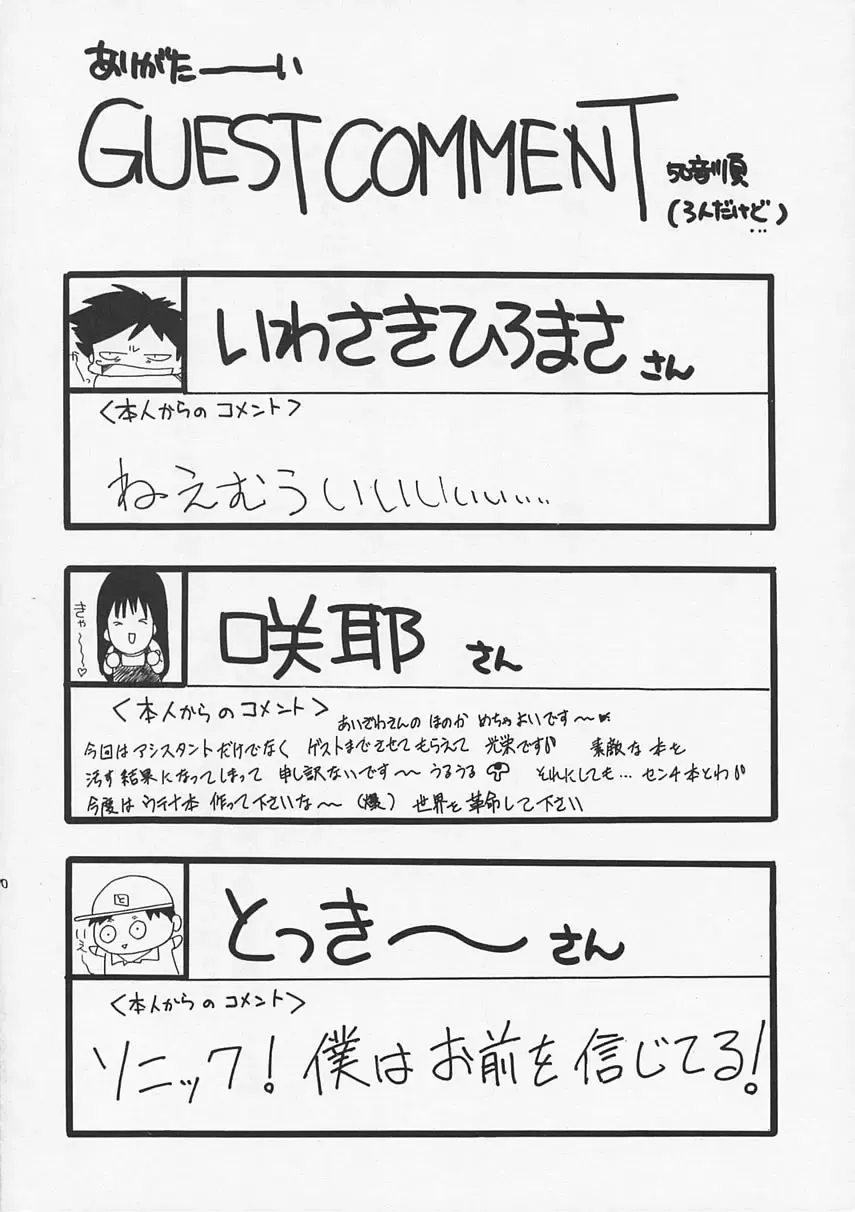 ありがたーーい
GUEST COMMENT
50音順
(3人だけど…)
いわさきひろまささん
<本人からの コメント>
ねえむういいいいぃぃ…
きゃ～～～♡
咲耶 さん
<本人からの コメント>
あいざわさんの ほのか めちゃよいです～
今回はアシスタントだけでなく ゲストまでさせてもらえて 光栄です♪ 素敵な 本を
汚す結果になってしまって 申し訳ないです～ うるうる それにしても… センチ本とわ♪
今度は ウテナ本 作って下さいな～ (爆) 世界を革命して下さい
と
いえ
とっき～ さん
<本人からの コメント>
ソニック! 僕はお前を信じてる!